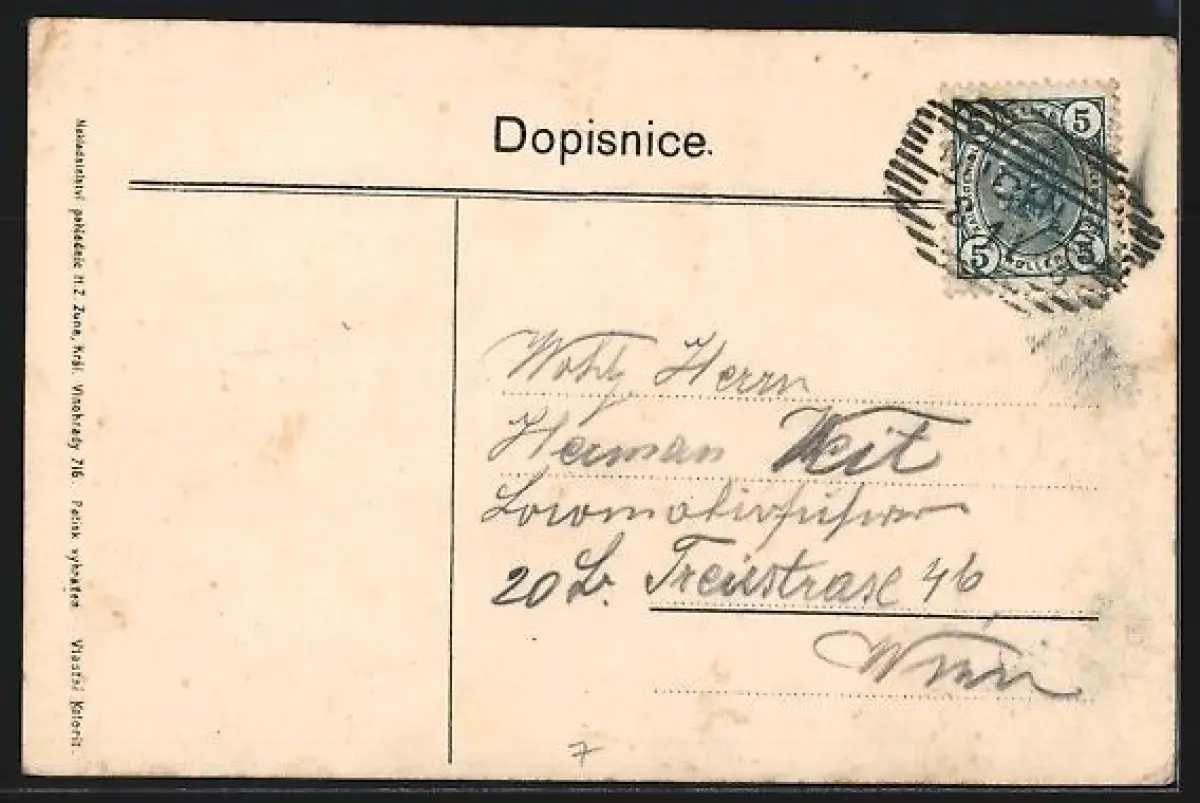 Dopisnice.
Nakladatelství pohlednic H.Z. Zuna, Král. Vinohrady 716. Patisk vyhražen Vlastní Kolorit.
5 5
5 5
Herrn
Herman Veit
Locomotivführer
20 Treustrase 46
Wien
7